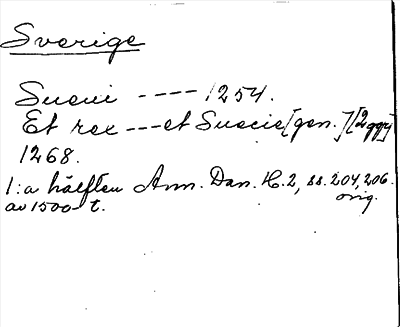 Sverige
Sueui ---- 1254.
Et rex --- et Suecie [gen.] [2ggr]
1268.
1:a hälften Ann. Dan. H. 2, ss. 204, 206.
av 1500-t. orig.